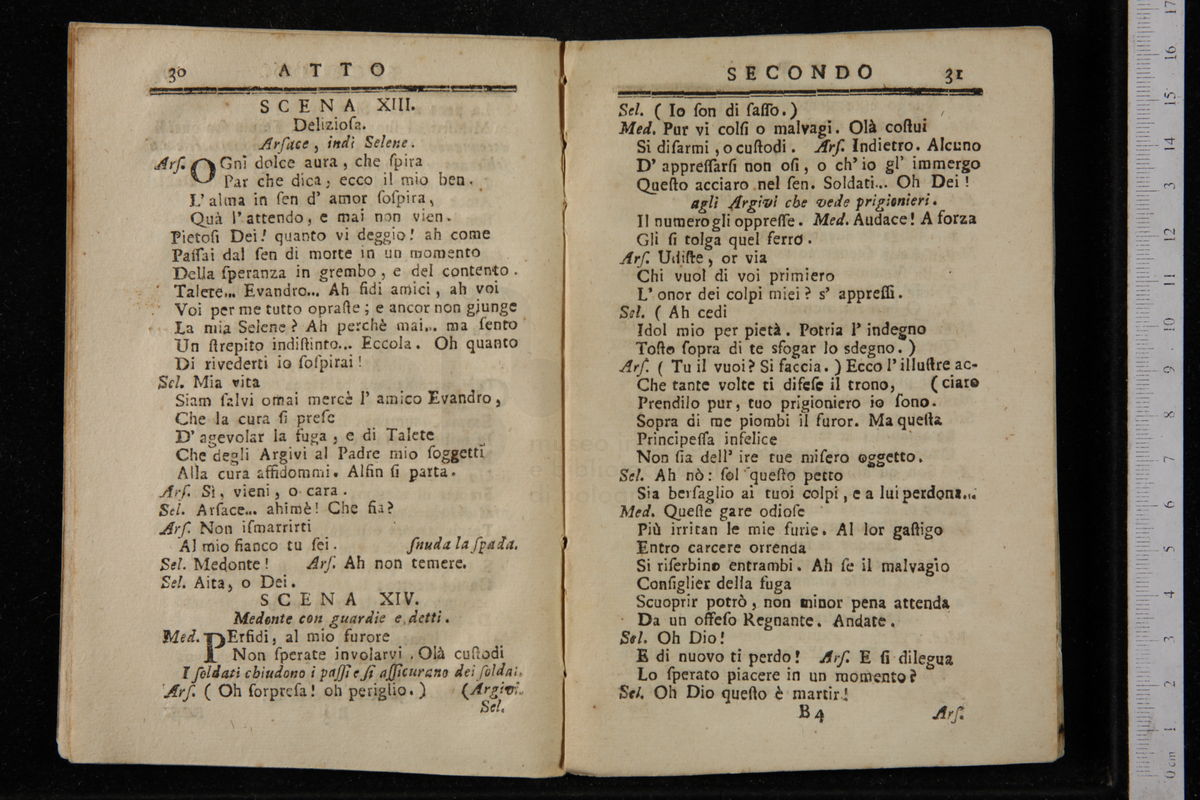 30 ATTO
SCENA XIII.
Delizioſa.
Arſace, indi Selene.
Arſ. OGni dolce aura, che ſpira
Par che dica, ecco il mio ben.
L' alma in ſen d' amor ſoſpira,
Quà l'attendo, e mai non vien.
Pietoſi Dei! quanto vi deggio! ah come
Paſſai dal ſen di morte in un momento
Della ſperanza in grembo, e del contento.
Talete... Evandro... Ah fidi amici, ah voi
Voi per me tutto opraſte; e ancor non gjunge
La mia Selene? Ah perchè mai... ma ſento
Un ſtrepito indiſtinto... Eccola. Oh quanto
Di rivederti io ſoſpirai!
Sel. Mia vita
Siam ſalvi omai mercè l' amico Evandro,
Che la cura ſi preſe
D' agevolar la fuga, e di Talete
Che degli Argivi al Padre mio ſoggetti
Alla cura affidommi. Alfin ſi parta.
Arſ. Sì, vieni, o cara.
Sel. Arſace... ahimè! Che fia?
Arſ. Non iſmarrirti
Al mio fianco tu ſei. ſnuda la ſpada.
Sel. Medonte! Arſ. Ah non temere.
Sel. Aita, o Dei.
SCENA XIV.
Medonte con guardie e detti.
Med. PErfidi, al mio furore
Non ſperate involarvi. Olà cuſtodi
I ſoldati chiudono i paſſi e ſi aſſicurano dei ſoldati
Arſ. ( Oh ſorpreſa! oh periglio. ) (Argivi.
Sel.
SECONDO 31
Sel. ( Io ſon di ſaſſo. )
Med. Pur vi colſi o malvagi. Olà coſtui
Si diſarmi, o cuſtodi. Arſ. Indietro. Alcuno
D' appreſſarſi non oſi, o ch' io gl' immergo
Queſto acciaro nel ſen. Soldati... Oh Dei!
agli Argivi che vede prigionieri.
Il numero gli oppreſſe. Med. Audace! A forza
Gli ſi tolga quel ferro.
Arſ. Udiſte, or via
Chi vuol di voi primiero
L' onor dei colpi miei? s' appreſſi.
Sel. ( Ah cedi
Idol mio per pietà. Potria l' indegno
Toſto ſopra di te sfogar lo sdegno. )
Arſ. ( Tu il vuoi? Si faccia. ) Ecco l' illuſtre ac-
Che tante volte ti difeſe il trono, ( ciaro
Prendilo pur, tuo prigioniero io ſono.
Sopra di me piombi il furor. Ma queſta
Principeſſa infelice
Non ſia dell' ire tue miſero oggetto.
Sel. Ah nò: ſol queſto petto
Sia berſaglio ai tuoi colpi, e a lui perdona...
Med. Queſte gare odioſe
Più irritan le mie furie. Al lor gaſtigo
Entro carcere orrenda
Si riſerbino entrambi. Ah ſe il malvagio
Conſiglier della fuga
Scuoprir potrò, non minor pena attenda
Da un offeſo Regnante. Andate.
Sel. Oh Dio!
E di nuovo ti perdo! Arſ. E ſi dilegua
Lo ſperato piacere in un momento?
Sel. Oh Dio queſto è martir!
B 4 Arſ.